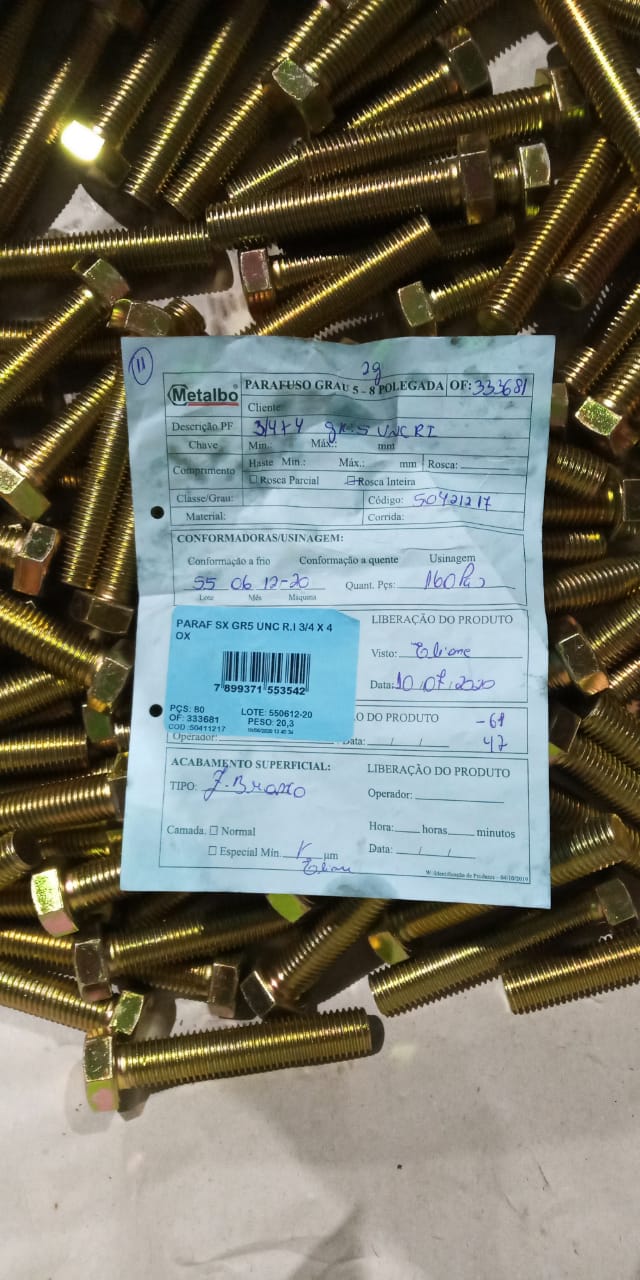 11
2g
Metalbo PARAFUSO GRAU 5 - 8 POLEGADA OF: 333681
Cliente
Descrição PF 3/4 x 4 gr. 5 UNC RI
Chave Mín.: Máx.: mm
Comprimento Haste Mín.: Máx.: mm Rosca:
Rosca Parcial Rosca Inteira
Classe/Grau: Código: 50421217
Material: Corrida:
CONFORMADORAS/USINAGEM:
Conformação a frio Conformação a quente Usinagem
55 06 12-20 Quant. Pçs: 160
Lote Mês Máquina
PARAF SX GR5 UNC R.I 3/4 X 4
OX
7 899371 553542
PÇS: 80 LOTE: 550612-20
OF: 333681 PESO: 20,3
COD: 50411217
LIBERAÇÃO DO PRODUTO
Visto: Eliane
Data: 10 07 2020
O DO PRODUTO -61
47
Operador: Data: / /
ACABAMENTO SUPERFICIAL: LIBERAÇÃO DO PRODUTO
TIPO: Operador:
Camada. Normal Hora: horas minutos
Especial Mín. μm Data: / /
Eliane
W: Identificação de Produto - 04/10/2019